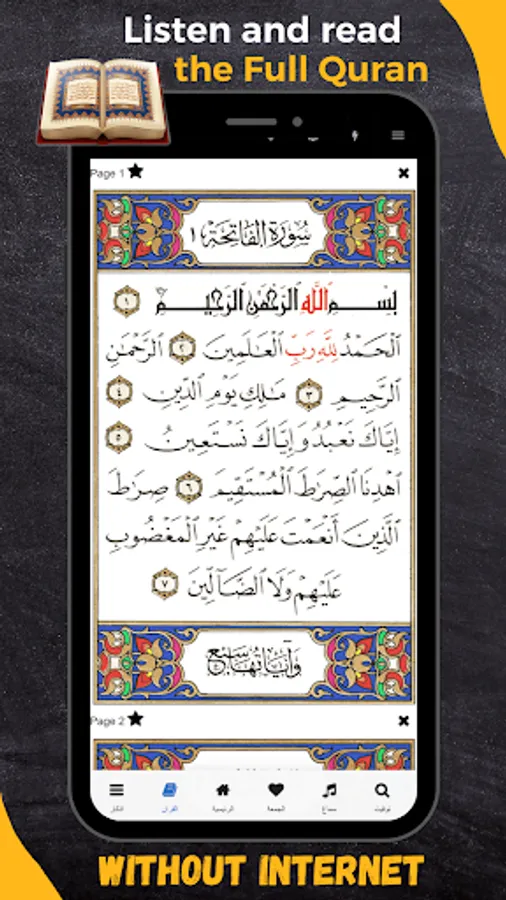 Listen and read
the Full Quran
Page 1
سُورَةُ الفَاتِحَة ١
بِسْمِ اللَّهِ الرَّحْمَٰنِ الرَّحِيمِ ١
الْحَمْدُ لِلَّهِ رَبِّ الْعَالَمِينَ ٢ الرَّحْمَٰنِ
الرَّحِيمِ ٣ مَالِكِ يَوْمِ الدِّينِ ٤
إِيَّاكَ نَعْبُدُ وَإِيَّاكَ نَسْتَعِينُ ٥
اهْدِنَا الصِّرَاطَ الْمُسْتَقِيمَ ٦ صِرَاطَ
الَّذِينَ أَنْعَمْتَ عَلَيْهِمْ غَيْرِ الْمَغْضُوبِ
عَلَيْهِمْ وَلَا الضَّالِّينَ ٧
وَآيَاتُهَا سَبْعٌ
Page 2
اذكار القرآن الرئيسية الجمعة سماع توقيت
WITHOUT INTERNET